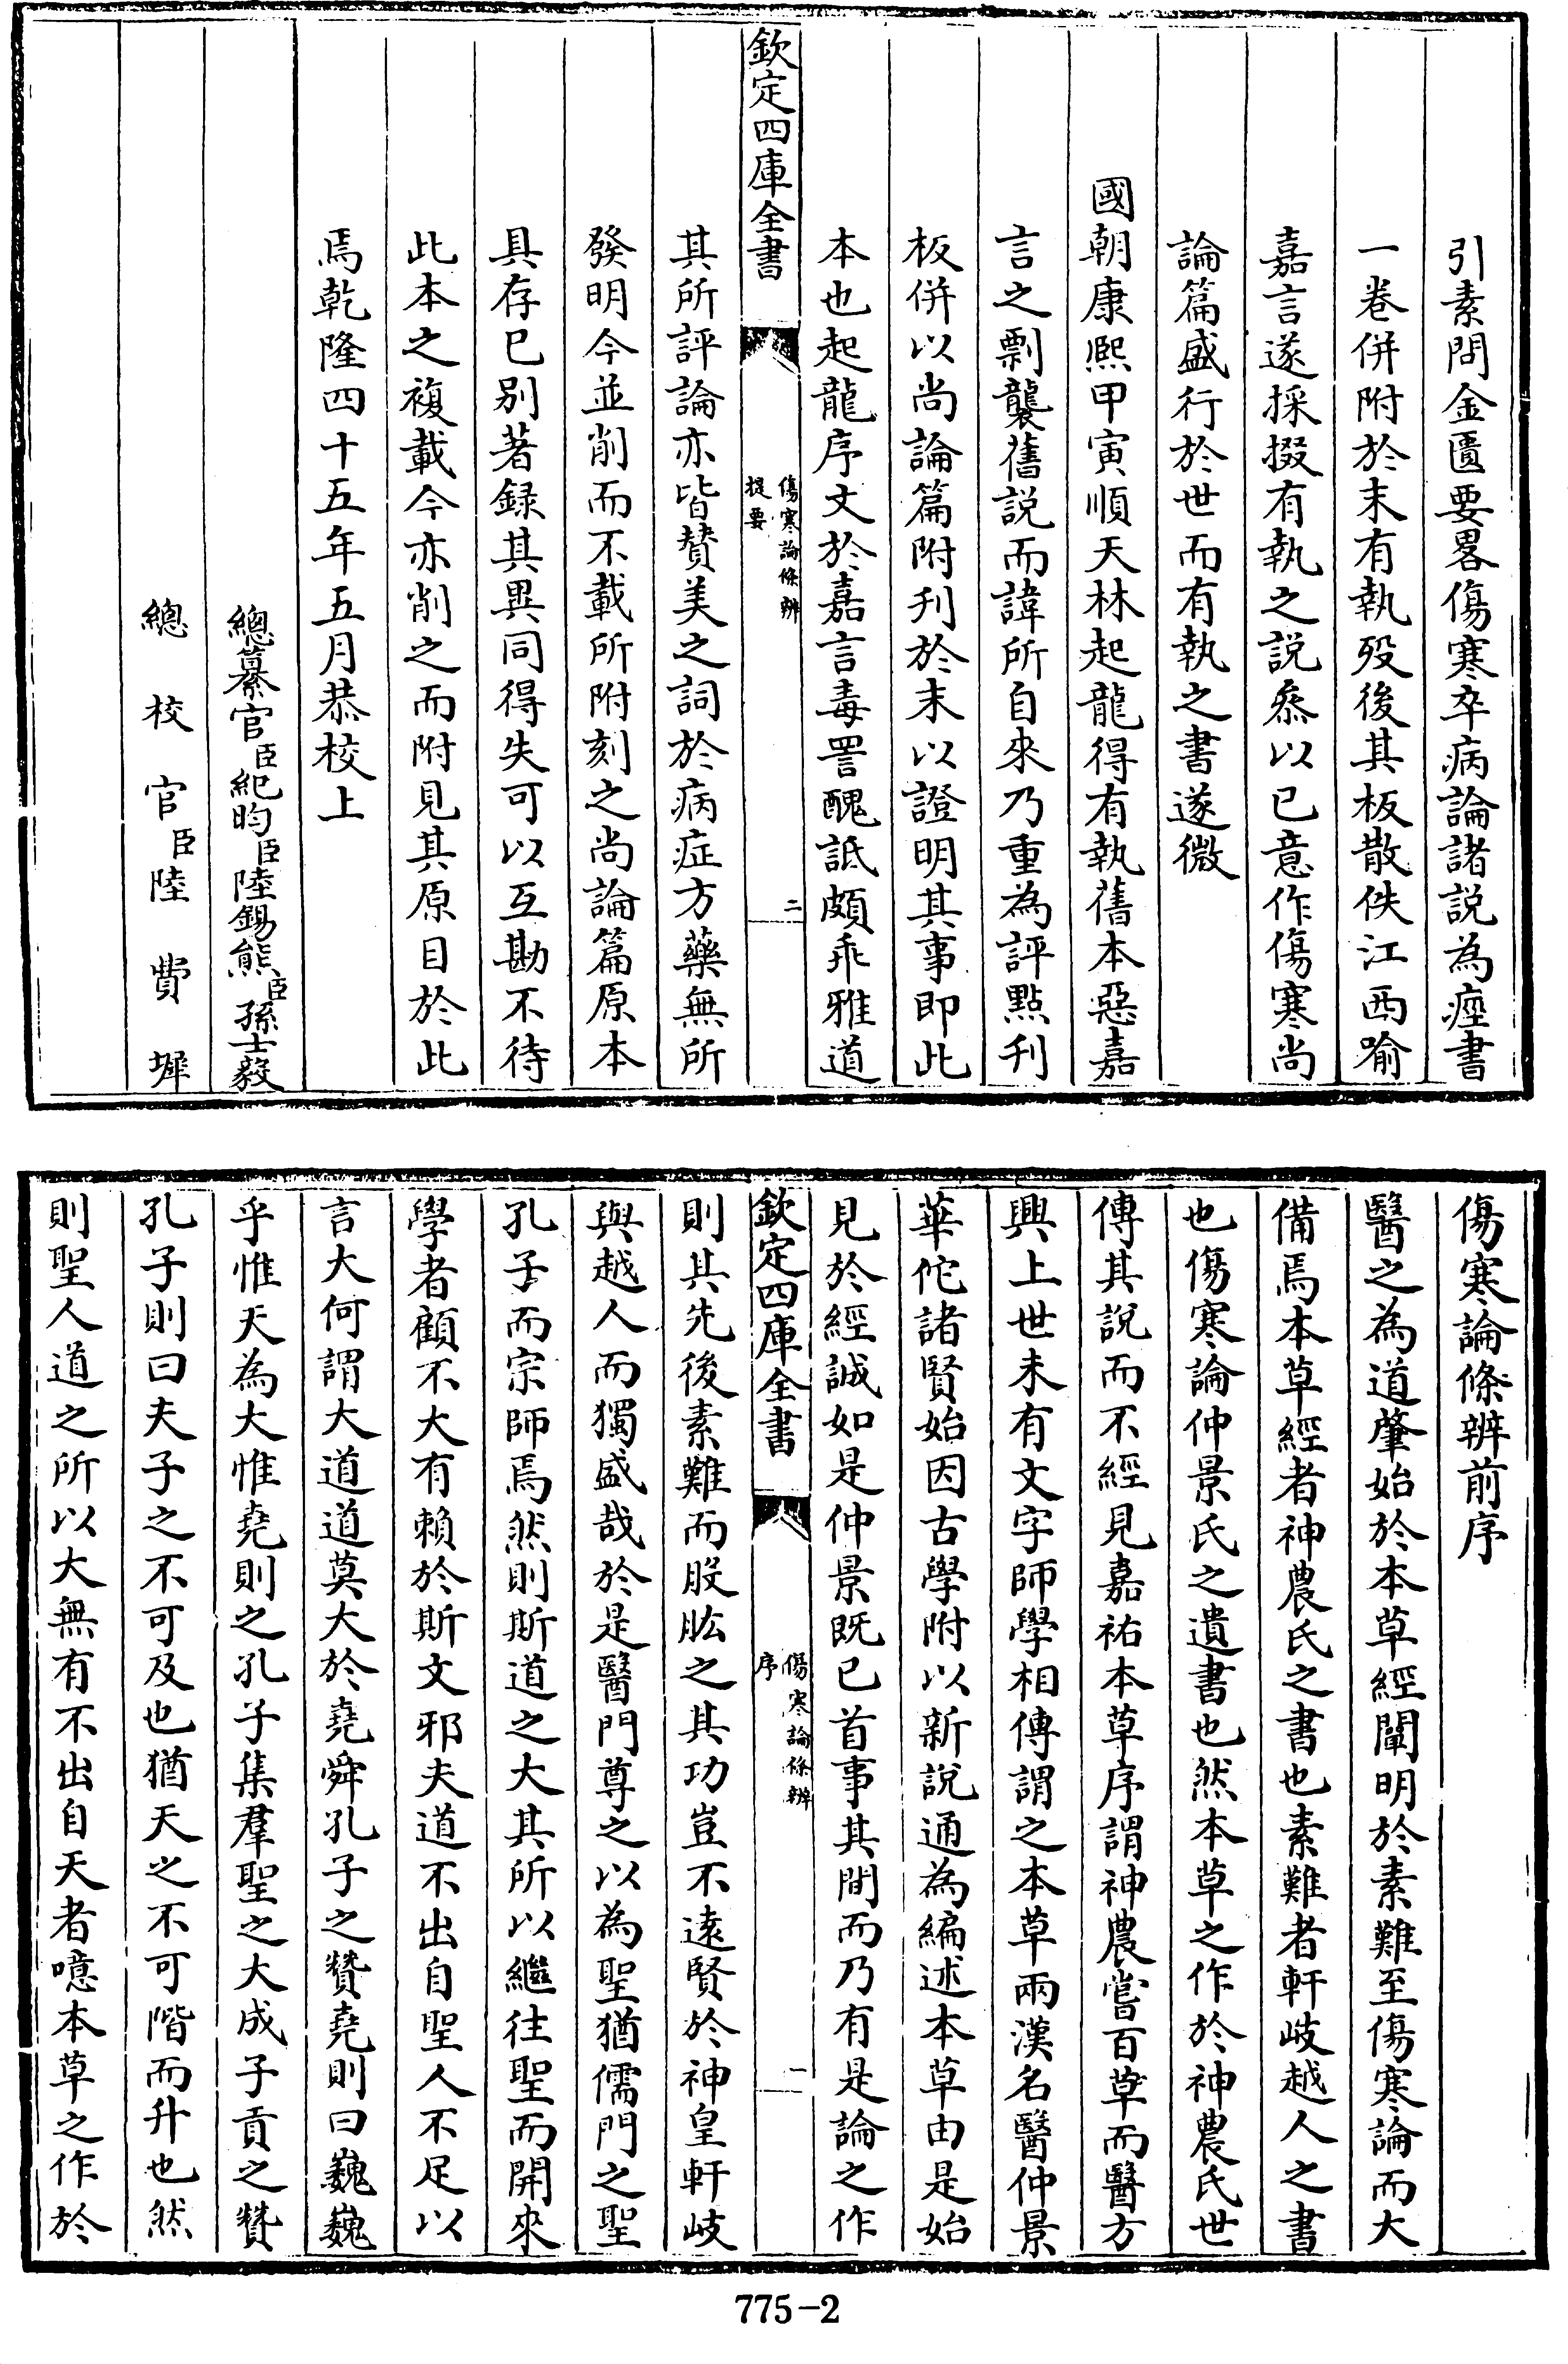 引素問金匱要畧傷寒卒病論諸説為痙書
一卷併附於末有執殁後其板散佚江西喻
嘉言遂採掇有執之説叅以已意作傷寒尚
論篇盛行於世而有執之書遂微
國朝康熙甲寅順天林起龍得有執舊本惡嘉
言之剽襲舊説而諱所自來乃重為評點刋
板併以尚論篇附刋於末以證明其事即此
本也起龍序文於嘉言毒詈醜詆頗乖雅道
欽定四庫全書
傷寒論條辨
提要
二
其所評論亦皆賛美之詞於病症方藥無所
發明今並削而不載所附刻之尚論篇原本
具存已别著録其異同得失可以互勘不待
此本之複載今亦削之而附見其原目於此
焉乾隆四十五年五月恭校上
總纂官臣紀昀臣陸錫熊臣孫士毅
總校官臣陸費墀
傷寒論條辨前序
醫之為道肇始於本草經闡明於素難至傷寒論而大
備焉本草經者神農氏之書也素難者軒岐越人之書
也傷寒論仲景氏之遺書也然本草之作於神農氏世
傳其説而不經見嘉祐本草序謂神農嘗百草而醫方
興上世未有文字師學相傳謂之本草兩漢名醫仲景
華佗諸賢始因古學附以新説通為編述本草由是始
見於經誠如是仲景既已首事其間而乃有是論之作
欽定四庫全書
傷寒論條辨
序
一
則其先後素難而股肱之其功豈不遠賢於神皇軒岐
與越人而獨盛哉於是醫門尊之以為聖猶儒門之聖
孔子而宗師焉然則斯道之大其所以繼往聖而開來
學者顧不大有賴於斯文邪夫道不出自聖人不足以
言大何謂大道道莫大於堯舜孔子之贊堯則曰巍巍
乎惟天為大惟堯則之孔子集羣聖之大成子貢之贊
孔子則曰夫子之不可及也猶天之不可階而升也然
則聖人道之所以大無有不出自天者噫本草之作於
775-2